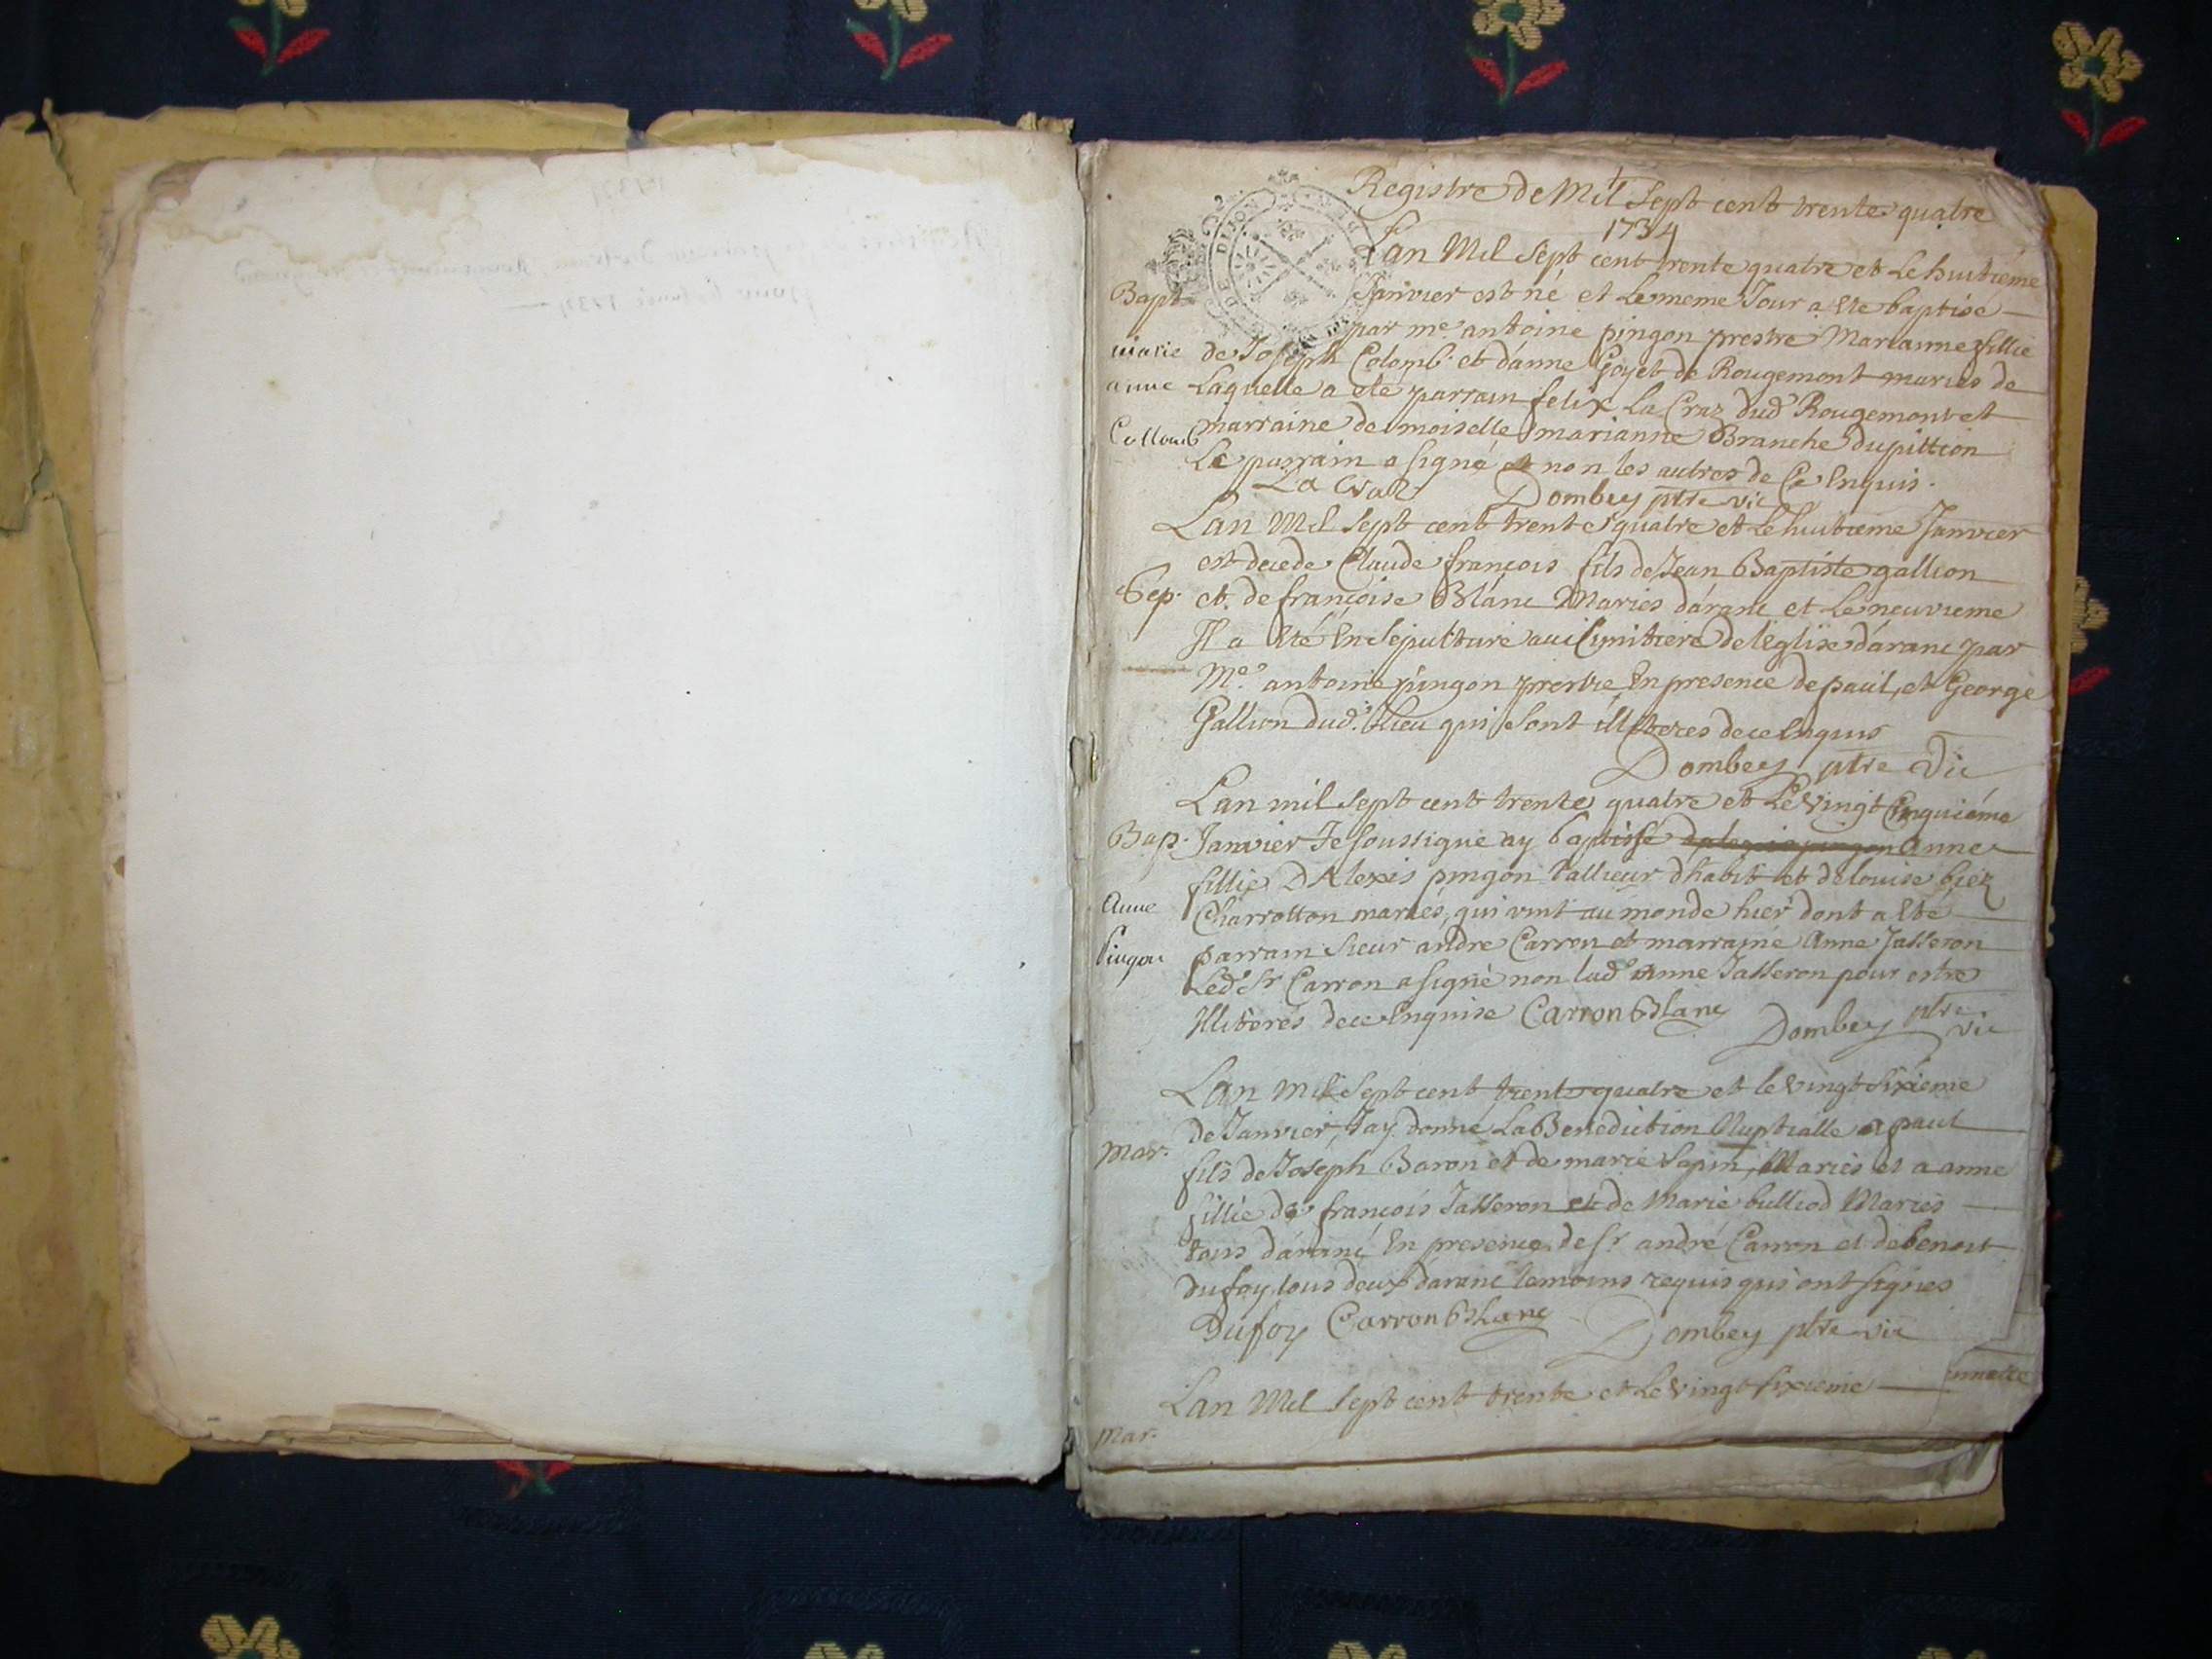 Registre de Mil Sept cent trente quatre
1734
Lan Mil Sept cent trente quatre et Le huitiéme
Bapt Janvier est né et Le meme Jour a ete baptisé
par me antoine pingon prestre Marianne fillie
marie de Joseph Colomb et d'anne Goyet de Rougemont maries de
anne Laquelle a ete parrain felix La Craz dud Rougemont et
Collomb marraine demoiselle marianne Branche du pittion
Le parrain a signé et non les autres de Ce Enquis.
La Craz Dombey ptre vic
Lan Mil Sept cent trente quatre et Le huitieme Janvier
est decede Claude françois fils de Jean Baptiste gallion
Sep. et de françoise Blanc Maries d'aranc et Le neuvieme
Il a eté En Sepulture au Cimitiere de l'Eglise d'aranc par
Me antoine pingon prestre En presence de paul, et George
Gallion dud. Lieu qui sont illiteres de ce Enquis
Dombey ptre Vic
Lan mil Sept cent trente quatre et Le Vingt Cinquiéme
Bap. Janvier Je soussigné ay baptissé Anne
fillie D'Alexis pingon tallieur d'habit et de louise
Anne Charrotton mariés, qui vint au monde hier dont a ete
Pingon parrain sieur andre Carron et marraine Anne Jasseron
Led. Sr Carron a signé non lad. anne Jasseron pour estre
Illiteres de ce Enquise Carron Blanc Dombey ptre
vic
Lan Mil Sept cent trente quatre et le vingt sixieme
de Janvier, Jay donné La Benediction Nuptialle a paul
Mar. fils de Joseph Baron et de marie Sapin, Mariés et a anne
fillie de françois Jasseron et de Marie bulliod Mariés
tous d'aranc En presence de Sr andré Carron et de benoit
dufoy tous deux d'aranc temoins requis qui ont signés
Dufoy Carron Blanc Dombey ptre vic
Lan Mil Sept cent trente et Le Vingt sixieme
Mar.